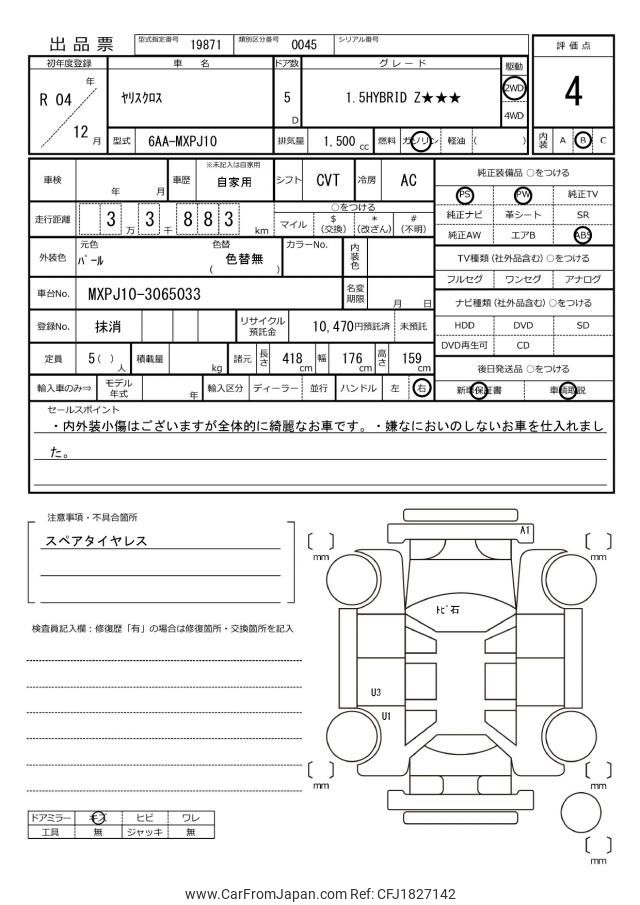 出品票 型式指定番号 19871 類別区分番号 0045 シリアル番号
評価点
4
内装 A B C
初年度登録 車名 ドア数 グレード 駆動
R 04 年 12 月 ヤリスクロス 5 D 1.5HYBRID Z★★★ 2WD
4WD
型式 6AA-MXPJ10 排気量 1,500 cc 燃料 ガソリン 軽油 ( )
車検 年 月 車歴 ※未記入は自家用 自家用 シフト CVT 冷房 AC
走行距離 3 万 3 千 883 km
○をつける
マイル $ (交換) * (改ざん) # (不明)
外装色 元色 パール 色替 ( 色替無 ) カラーNo. 内装色
車台No. MXPJ10-3065033 名変期限 月 日
登録No. 抹消 リサイクル預託金 10,470円預託済 未預託
定員 5( )人 積載量 kg 諸元 長さ 418 cm 幅 176 cm 高さ 159 cm
輸入車のみ⇒ モデル年式 年 輸入区分 ディーラー 並行 ハンドル 左 右
純正装備品 ○をつける
PS PW 純正TV
純正ナビ 革シート SR
純正AW エアB ABS
TV種類(社外品含む) ○をつける
フルセグ ワンセグ アナログ
ナビ種類(社外品含む) ○をつける
HDD DVD SD
DVD再生可 CD
後日発送品 ○をつける
新車保証書 車輌取説
セールスポイント
・内外装小傷はございますが全体的に綺麗なお車です。・嫌なにおいのしないお車を仕入れまし
た。
注意事項・不具合箇所
スペアタイヤレス
検査員記入欄：修復歴「有」の場合は修復箇所・交換箇所を記入
A1
mm
mm
トビ石
U3
U1
mm
mm
mm
ドアミラー キズ ヒビ ワレ
工具 無 ジャッキ 無
www.CarFromJapan.com Ref: CFJ1827142